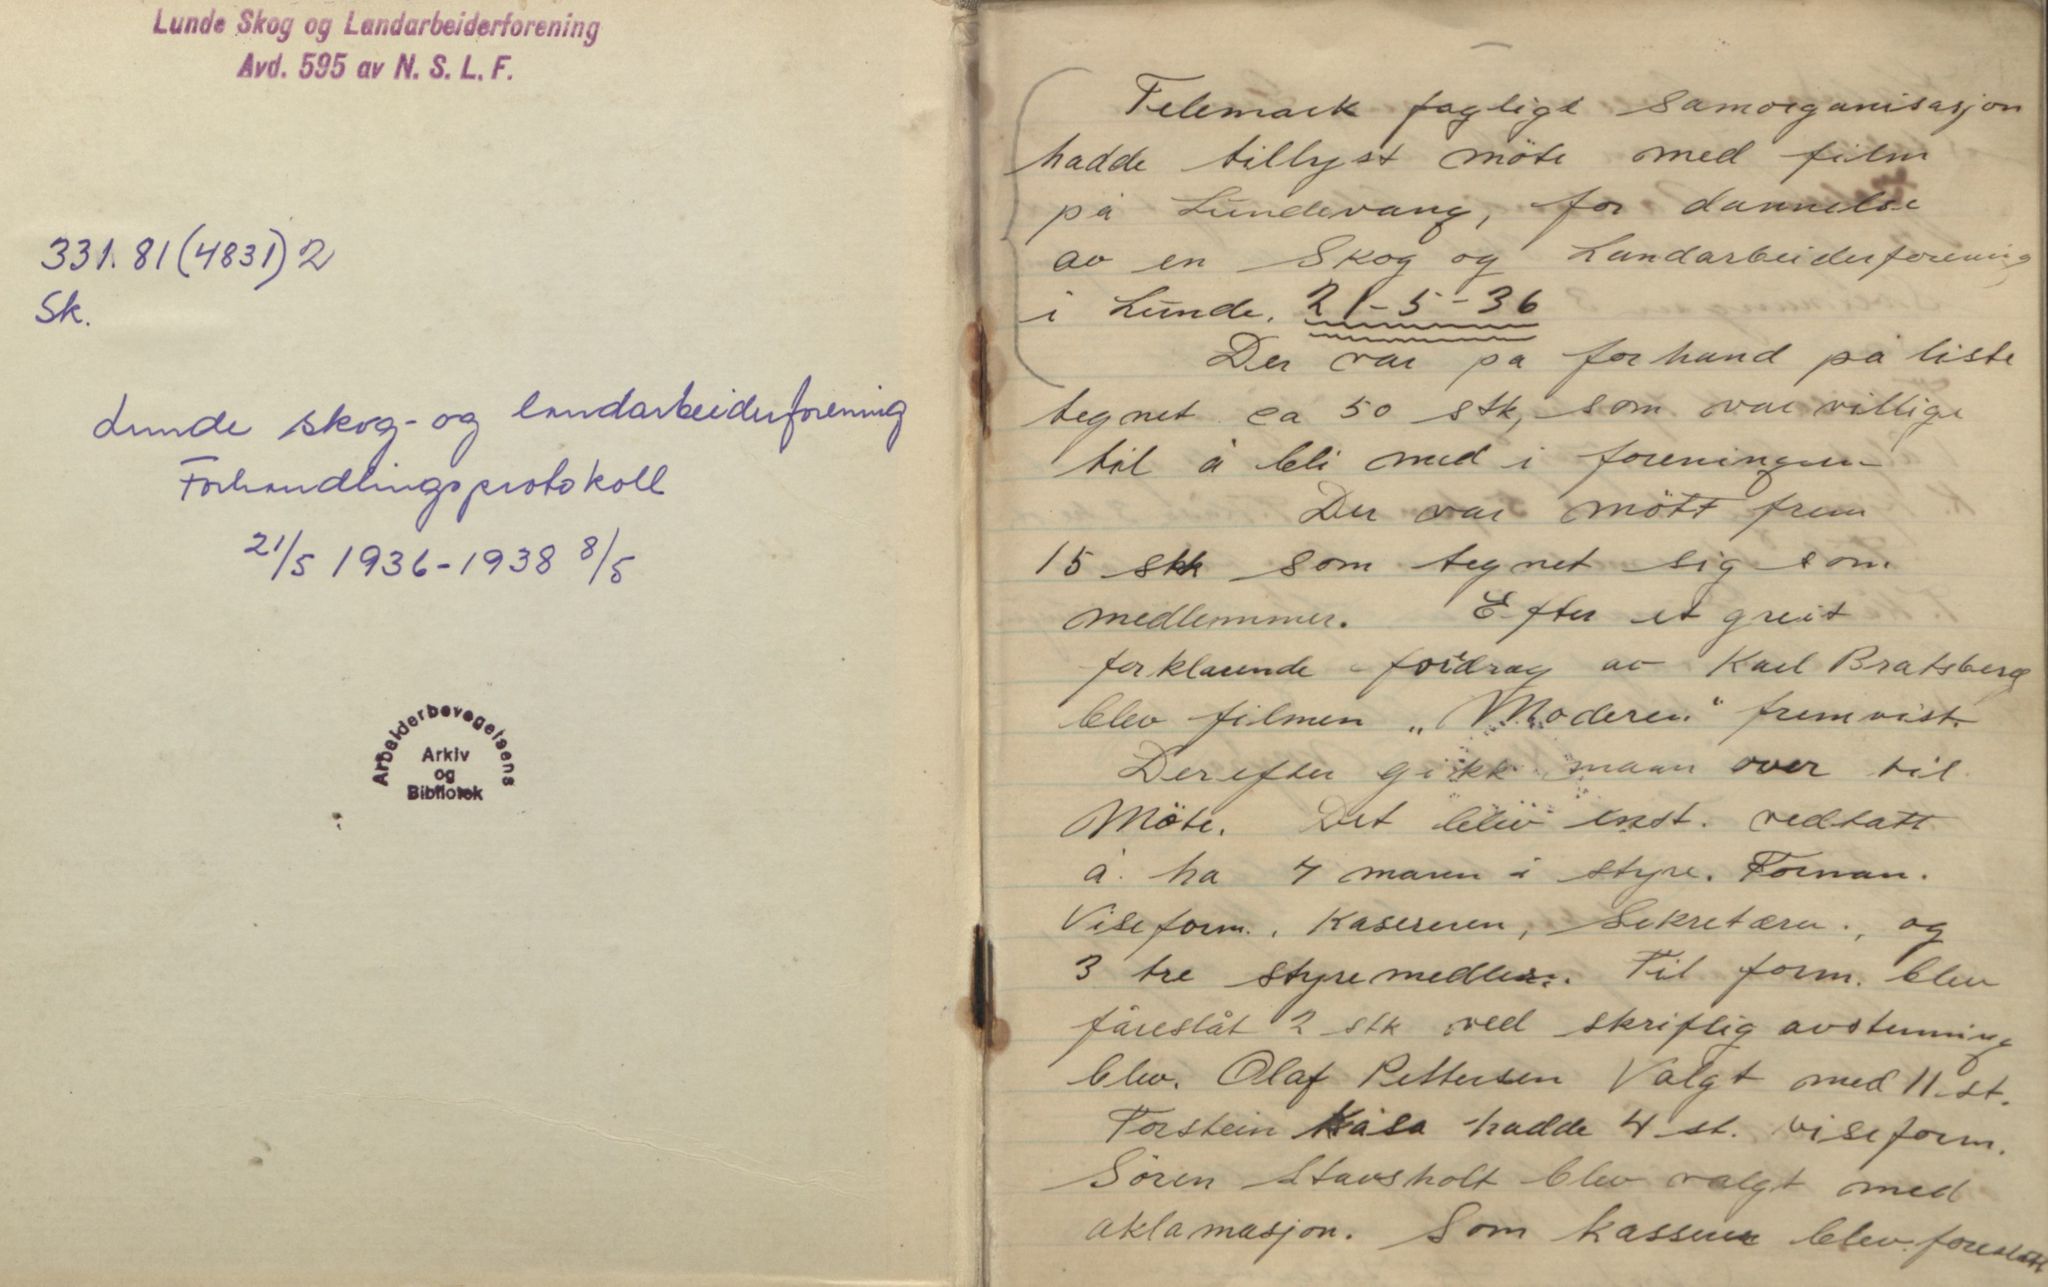 Lunde Skog og Landarbeiderforening
Avd. 595 av N. S. L. F.
331.81(4831)2
Sk.
Lunde skog- og landarbeiderforening
Forhandlingsprotokoll
21/5 1936-1938 8/5
Arbeiderbevegelsens
Arkiv
og
Bibliotek
Telemark fagligt samorganisasjon
hadde tillyst möte med film
på Lundevang, for dannelse
av en Skog og Landarbeiderforening
i Lunde. 21-5-36
Der var på forhand på liste
tegnet ca 50 stk, som var villige
til å bli med i foreningen
Der var mött frem
15 stk som tegnet sig som
medlemmer. Efter et greit
forklarende foidrag av Karl Bratsberg
blev filmen „Moderen" fremvist.
Derefter gikk mann over til
Möte. Det blev enst. vedtatt
å ha 4 mann i styre. Forman.
Viseform., Kasereren, Sekretæren., og
3 tre styremedlem. Til form. blev
fåreslåt 2 stk ved skriftlig avstemning
blev. Olaf Pettersen Valgt med 11 st.
Torstein Kåsa hadde 4 st. viseform.
Sören Stavsholt blev valgt med
aklamasjon. Som kasserer blev foreslått